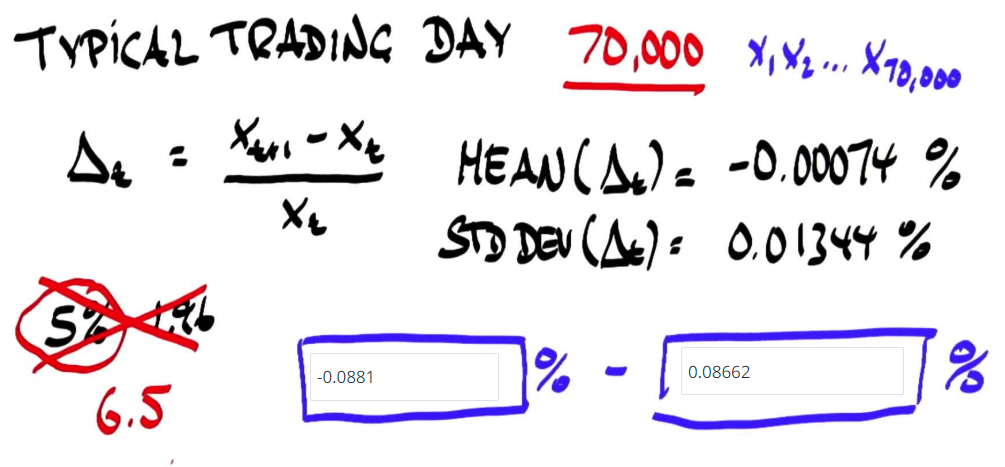 TYPICAL TRADING DAY 70,000 x₁ x₂ ... x₇₀,₀₀₀
Δₜ = (xₜ₊₁ - xₜ) / xₜ
MEAN(Δₜ) = -0.00074 %
STD DEV(Δₜ) = 0.01344 %
5% 1.96
6.5
-0.0881 % - 0.08662 %